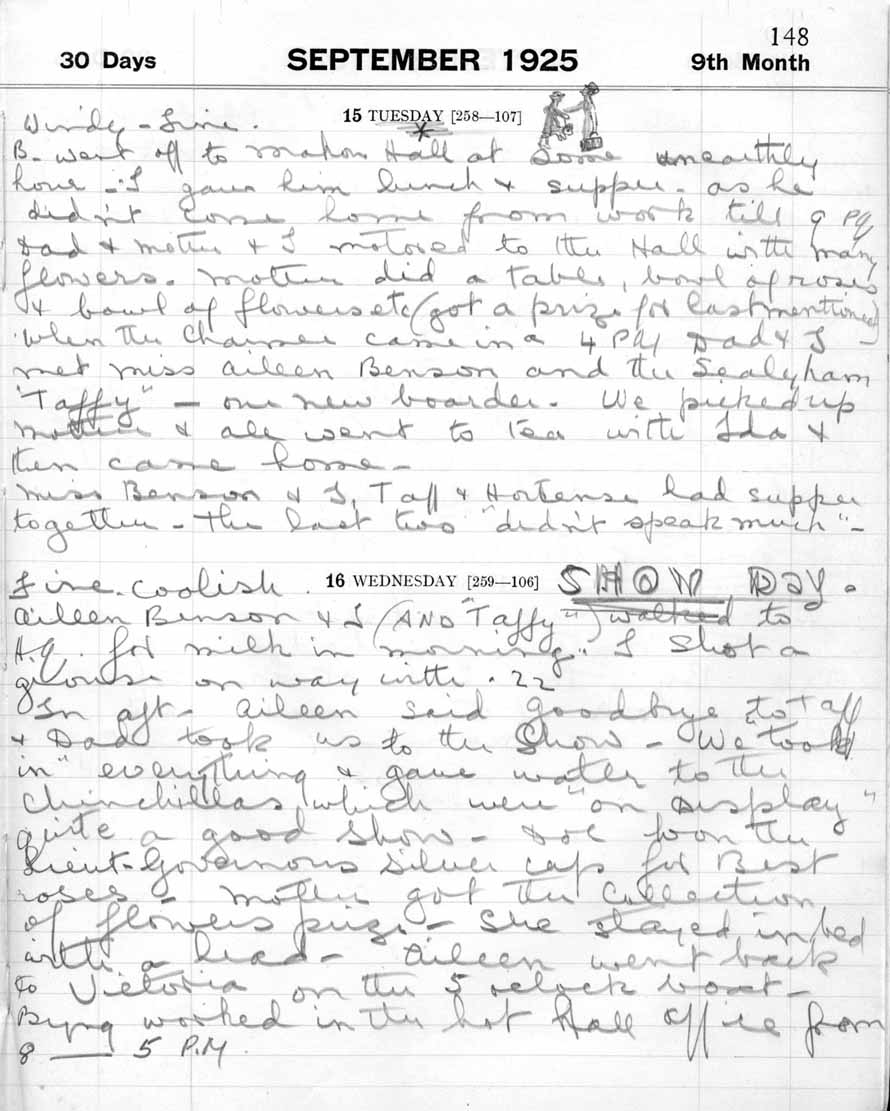 148
30 Days SEPTEMBER 1925 9th Month
15 TUESDAY [258—107]
Windy - Fine.
B. went off to Mahon Hall at Some unearthly
hour - I gave him lunch & supper - as he
didn't come home from work till 9 PM
Dad & Mother & I motored to the Hall with many
flowers. Mother did a table, bowl of roses
& bowl of flowers etc (got a prize for last mentioned)
When the Charmer came in a 4 PM Dad & I -
met Miss Aileen Benson and the Sealyham
"Taffy" - our new boarder. We picked up
Mother & all went to Tea with Ida &
then came home -
Miss Benson & I, Taff & Hortense had supper
together - The last two "didn't speak much" -
16 WEDNESDAY [259—106] SHOW DAY.
Fine. Coolish.
Aileen Benson & I (AND "Taffy") walked to
H.Q. for milk in morning. I Shot a
grouse on way with .22
In aft - Aileen said goodbye to Taff
& Dad took us to the Show - We "took
in" everything & gave water to the
Chinchillas which were "on Display"
quite a good Show - won the
Lieut-Governors Silver cup for Best
roses - Mother got the Collection
of flowers prize - She stayed in bed
with a head - Aileen went back
to Victoria on the 5 oclock boat -
Byng worked in the hot Hall Office from
8 — 5 P.M.